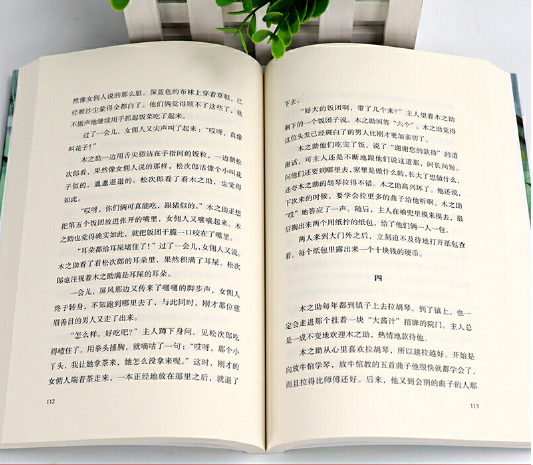 然像女佣人说的那么脏。深蓝色的布裤上穿着草鞋，已
经被沙尘蒙得全都白了。他们俩觉得顾不了这些了，就
不做声地继续用手抓起饭菜吃了起来。
过了一会儿，女佣人又尖声叫了起来：“哎呀，真像
叫花子！”
木之助一边用舌尖舔沾在手指间的饭粒，一边朝松
次郎看去，果然像女佣人说的那样，松次郎活像个小叫花
子似的，邋邋遢遢的。松次郎看了看木之助，也觉得
如此。
“哎呀，你们俩可真能吃，跟猪似的。”木之助正想
把第五个饭团放进张开的嘴里，女佣人又嚷嚷起来。木
之助也觉得确实如此，就把饭团干脆一口咬在了嘴里。
“耳朵都给耳屎堵住了！”过了一会儿，女佣人又说。
木之助看了看松次郎的耳朵里，果然积满了耳屎。松次
郎也注视着木之助满是耳屎的耳朵。
一会儿，屏风那边又传来了嗵嗵的脚步声，女佣人
终于转身，不知跑到哪里去了，与此同时，刚才那位慈
眉善目的男人又走了出来。
“怎么样，好吃吧？”主人蹲下身问，见松次郎吃
得噎住了，用拳头捶胸，就嘀咕了一句：“哎呀，那个小
丫头，我让她拿茶来，她怎么没拿来呢。”这时，刚才的
女佣人端着茶走来，一本正经地放在那里之后，就退了
112
下去。
“好大的饭团啊，带了几个来？”主人望着木之助
剩下的一个饭团子说。木之助回答“六个”。木之助觉得
这位头发已经斑白了的男人比刚才更加亲切了。
木之助他们吃完了饭，说了“谢谢您的款待”的道
谢话，可主人还是不断地跟他们说这道那，问长问短。
问他们还要到哪里去，家里是做什么的，长大了想做什么，
还夸木之助的胡琴拉得不错。木之助高兴坏了。他还说，
下次来的时候，要学会拉更多的曲子给他听啊。木之助
“哎”地答应了一声。随后，主人在袖兜里摸来摸去，最
后掏出来两个用纸拧的纸包，给了他们俩一人一包。
两人来到大门外之后，立刻迫不及待地打开纸包查
看。每个纸包里露出来一个十块钱的硬币。
四
木之助每年都到镇子上去拉胡琴。到了镇上，也一
定会走进那个挂着一块“大酱汁”招牌的院门。主人总
是一成不变地欢迎木之助，热情地款待他。
木之助从心里喜欢拉胡琴，所以越拉越好。开始是
向放牛倌学琴，放牛倌教的五首曲子他很快就都学会了，
而且拉得比师傅还好。后来，他又到会别的曲子的人那
113